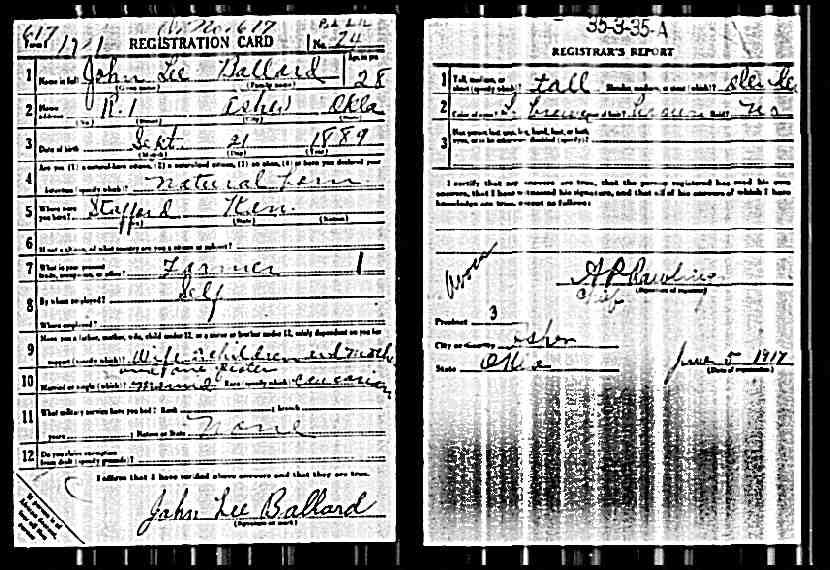 617
No. 617
Form 1 1921 REGISTRATION CARD No. 24
Age, in yrs.
1 Name in full John Lee Ballard 28
(Given name) (Family name)
2 Home address R.1 Okla
(No.) (Street) (City) (State)
3 Date of birth Sept. 21 1889
(Month) (Day) (Year)
Are you (1) a natural-born citizen, (2) a naturalized citizen, (3) an alien, (4) or have you declared your
4 intention (specify which)? natural born
5 Where were you born? Stafford Kan.
(Town) (State) (Nation)
6 If not a citizen, of what country are you a citizen or subject?
7 What is your present trade, occupation, or office? Farmer 1
8 By whom employed? Self
Where employed?
Have you a father, mother, wife, child under 12, or a sister or brother under 12, solely dependent on you for
9 support (specify which)? Wife children and moth
and one sister
10 Married or single (which)? married Race (specify which)? Caucasian
11 What military service have you had? Rank ; branch
years ; Nation or State None
12 Do you claim exemption from draft (specify grounds)?
I affirm that I have verified above answers and that they are true.
John Lee Ballard
(Signature or mark)
35-3-35-A
REGISTRAR'S REPORT
1 Tall, medium, or short (specify which)? tall Slender, medium, or stout (which)?
2 Color of eyes? Color of hair? Bald? No
3 Has person lost arm, leg, hand, foot, or both eyes, or is he otherwise disabled (specify)?
I certify that my answers are true, that the person registered has read his own
answers, that I have witnessed his signature, and that all of his answers of which I have
knowledge are true, except as follows:
(Signature of registrar)
Precinct 3
City or County
State
June 5 1917
(Date of registration)